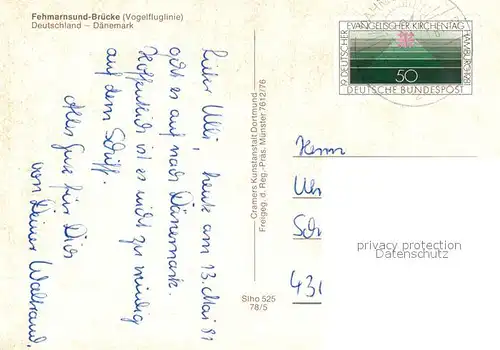 Fehmarnsund-Brücke (Vogelfluglinie)
Deutschland – Dänemark
Lieber Ulli, heute am 13. Mai 81
geht es auf nach Dänemark.
Hoffentlich ist es nicht zu windig
auf dem Schiff.
Alles Gute für Dich
von Deiner Waltraud
Cramers Kunstanstalt Dortmund
Freigeg. d. Reg.-Präs. Münster 7612/76
Slho 525
78/5
19 DEUTSCHER EVANGELISCHER KIRCHENTAG HAMBURG 1981
50
DEUTSCHE BUNDESPOST
Herrn
privacy protection
Datenschutz
431